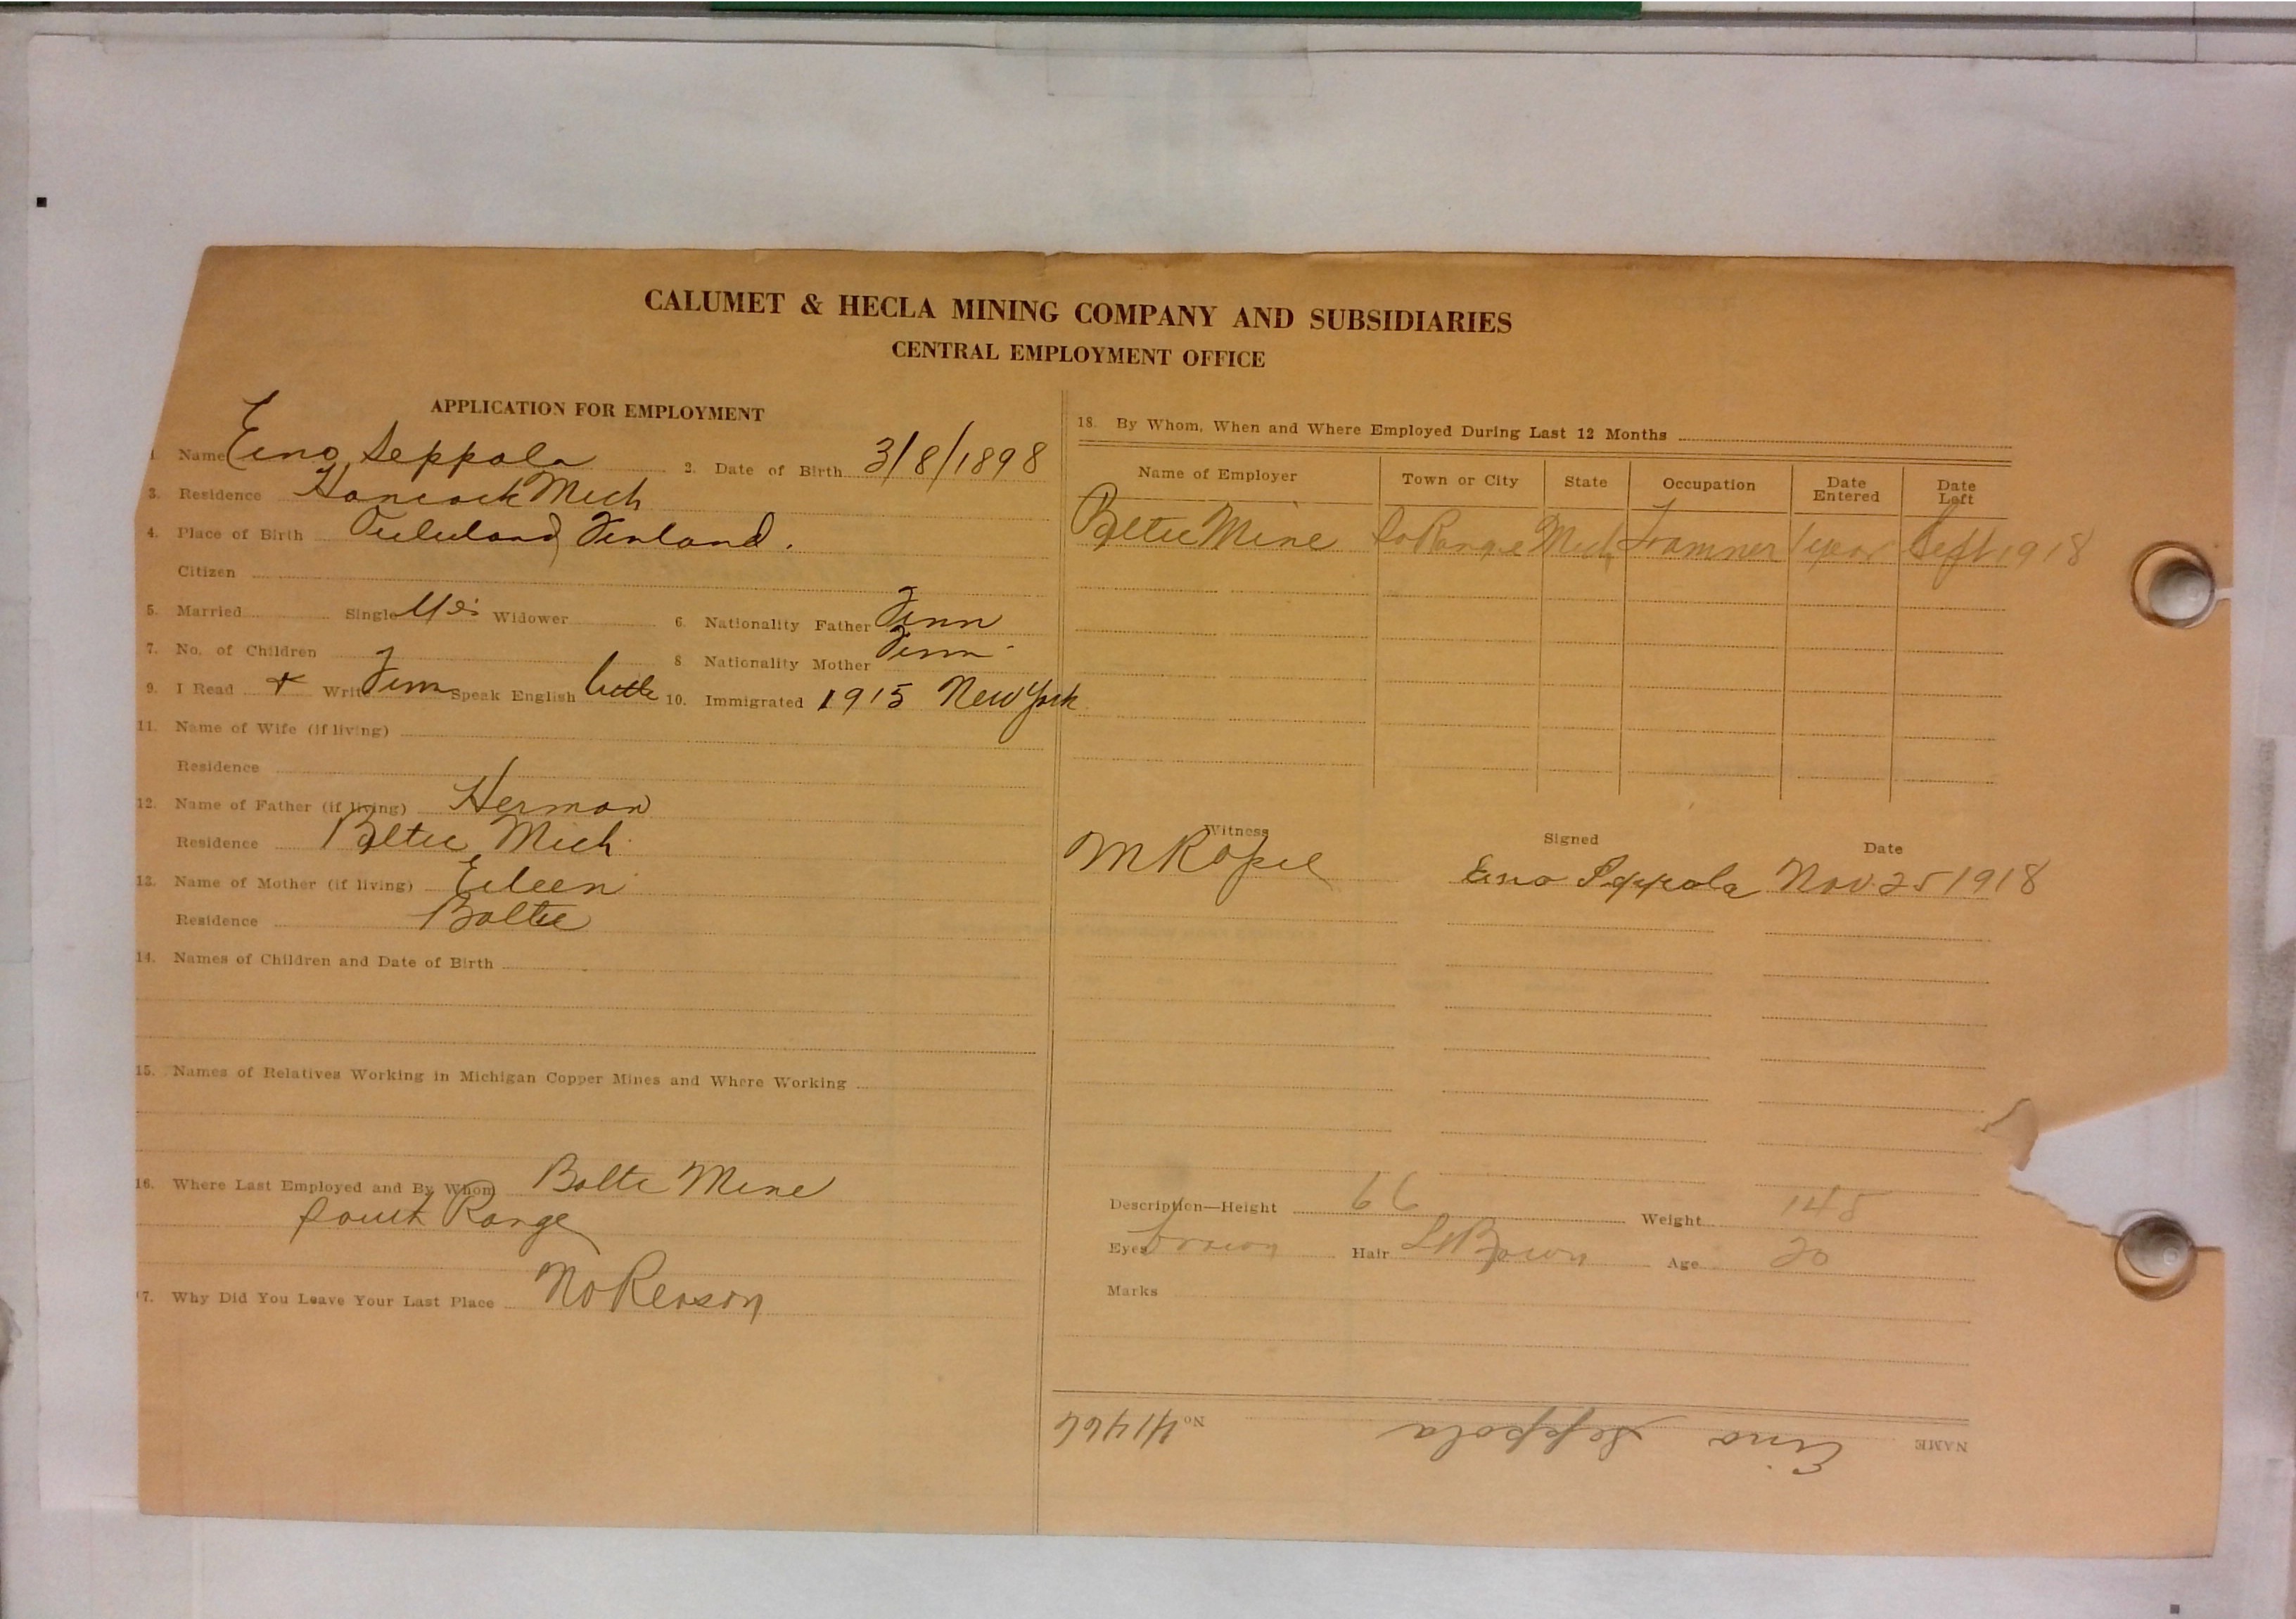 CALUMET & HECLA MINING COMPANY AND SUBSIDIARIES
CENTRAL EMPLOYMENT OFFICE
APPLICATION FOR EMPLOYMENT
1 Name Eino Seppola 2. Date of Birth 3/8/1898
3. Residence Hancock Mich
4. Place of Birth Finland.
Citizen
5. Married Single Yes Widower 6. Nationality Father Finn
7. No. of Children 8. Nationality Mother Finn
9. I Read + Write Finn Speak English little 10. Immigrated 1915 New York
11. Name of Wife (if living)
Residence
12. Name of Father (if living) Herman
Residence Baltic Mich
13. Name of Mother (if living) Eileen
Residence Baltic
14. Names of Children and Date of Birth
15. Names of Relatives Working in Michigan Copper Mines and Where Working
16. Where Last Employed and By Whom Baltic Mine
South Range
17. Why Did You Leave Your Last Place No Reason
18. By Whom, When and Where Employed During Last 12 Months
Name of Employer Town or City State Occupation Date Entered Date Left
Baltic Mine So Range Mich Trammer 1 year Sept 1918
Witness Signed Date
Eino Seppola Nov 25 1918
Description—Height 66 Weight 145
Eyes brown Hair Lt Brown Age 20
Marks
NAME Eino Seppola No 41466